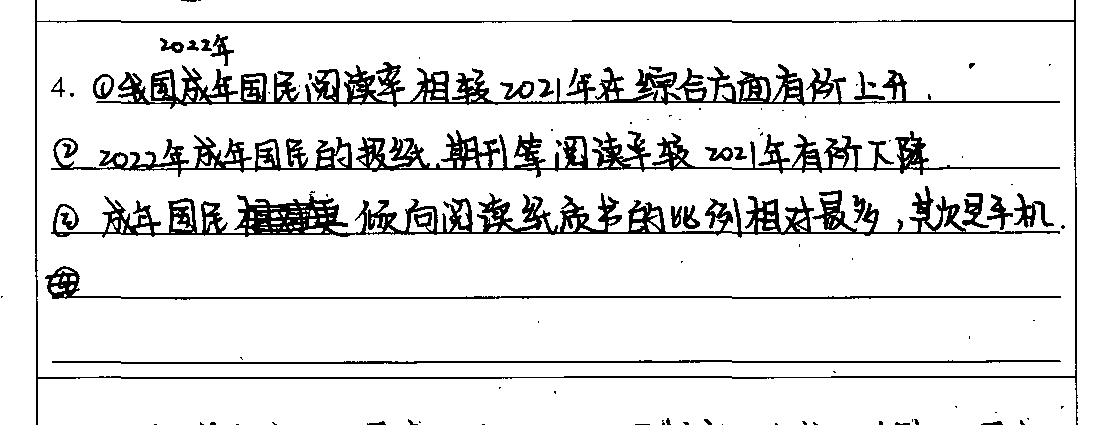 2022年
4. ①我国成年国民阅读率相较2021年在综合方面有所上升.
② 2022年成年国民的报纸.期刊等阅读率较2021年有所下降.
③ 成年国民倾向阅读纸质书的比例相对最多,其次是手机.
④